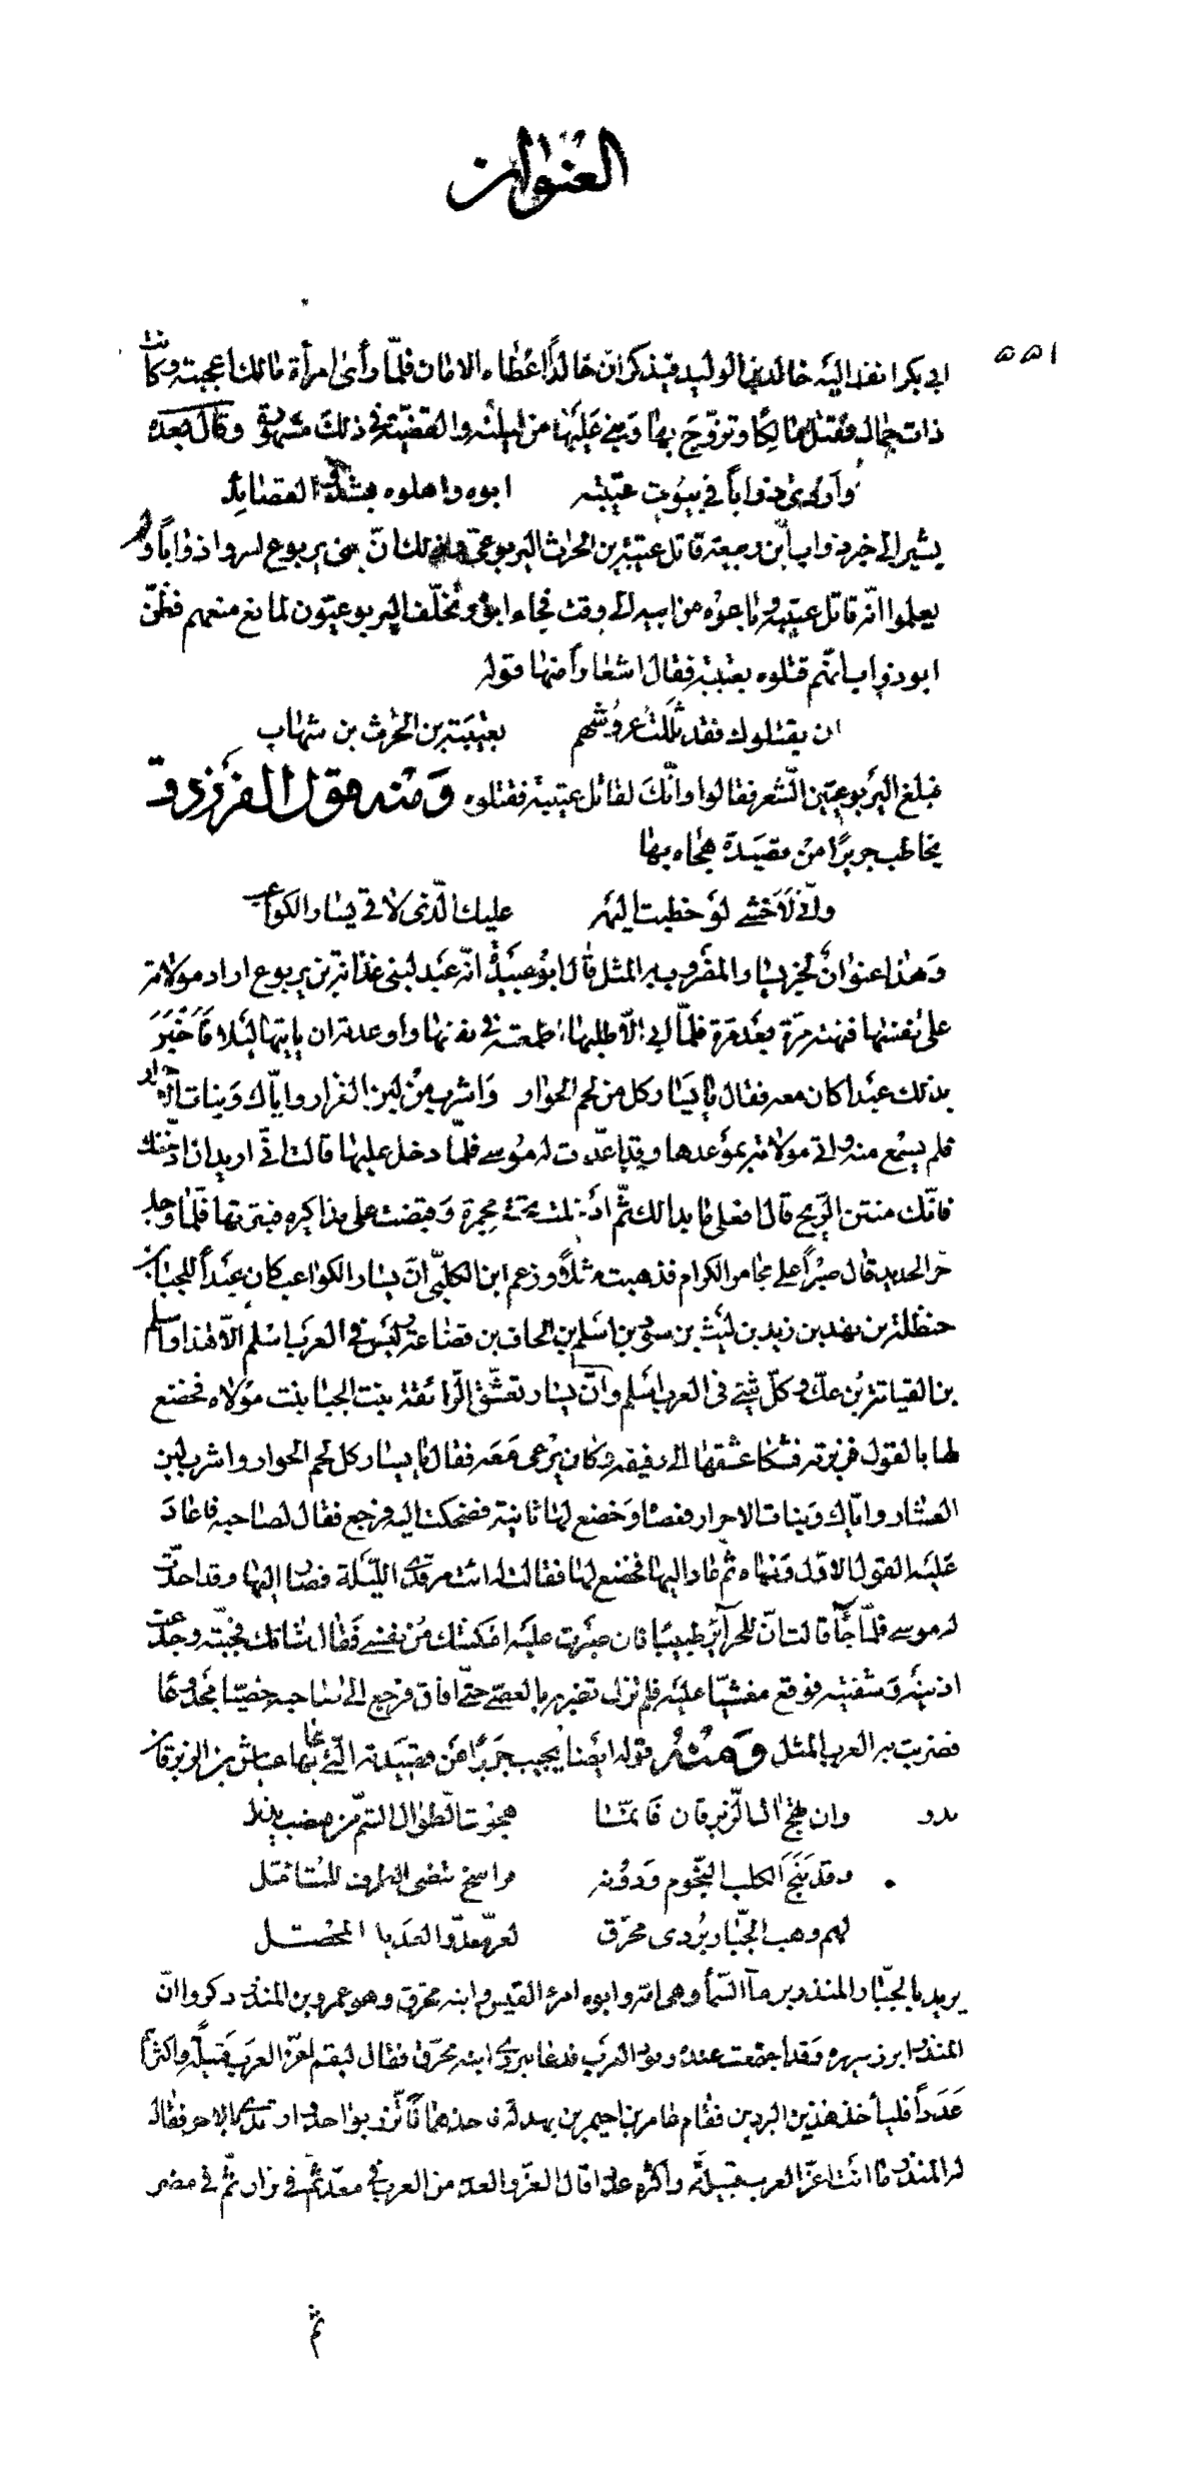 العنوان
٥٥١
ابي بكر انفذ اليه خالد بن الوليد فيذكر ان خالدًا اعطاه الامان فلمّا رأى امرأة مالك اعجبته وكانت
ذات جمال فقتل مالكًا وتزوّج بها وبنى عليها من ليلته والقضيّة في ذلك مشهورة وقال بعده
وأردى ذواباً في بيوت عتيبة ابوه واهلوه بشدو القصايد
يشير الى خبر ذواب بن ربيعة قاتل عتيبة بن الحرث اليربوعيّ وذلك انّ بني يربوع اسروا ذواباً ولم
يعلموا انّه قاتل عتيبة وباعوه من ابيه الى وقت فجاء ابوه وتخلّف اليربوعيّون لمانع منعهم فظنّ
ابو ذواب انّهم قتلوه بعتيبة فقال اشعاراً منها قوله
ان يقتلوك فقد ثللت عروشهم بعتيبة بن الحرث بن شهاب
فبلغ اليربوعيّين الشعر فقالوا وانّك لقاتل عتيبة فقتلوه ومنه قول الفرزدق
يخاطب جريرًا من قصيدة هجاه بها
وانّي لأخشى لو خطبت اليهم عليك الّذي لاقى يسار الكواعب
وهذا عنوان لخبر يسار المضروب به المثل قال ابو عبيدة انّه عبد لبني غدانة بن يربوع اراد مولاته
على نفسها فنهته مرّة بعد مرة فلمّا ابى الّا طلبها اطمعته في نفسها واوعدته ان ياتيها ليلا فأخبر
بذلك عبدا كان معه فقال يا يسار كل من لحم الحوار واشرب من لبن الغزار وايّاك وبنات الاحرار
فلم يسمع منه واتى مولاته بموعدها وقد اعدّت له موسى فلمّا دخل عليها قالت انّي اريد ان ادخّنك
فانّك منتن الرّيح قال افعلي ما بدا لك ثمّ ادخلت تحته مجمرة وقبضت على مذاكيره فبترتها فلمّا وجد
حرّ الحديد قال صبرًا على مجامر الكرام فذهبت مثلاً وزعم ابن الكلبيّ انّ يسار الكواعب كان عبداً للجبا بن
حنظلة بن نهد بن زيد بن ليث بن سود بن اسلم بن الحاف بن قضاعة وليس في العرب اسلم الّا هذا واسلم
بن القياتة بن عكّ وكلّ شيئ في العرب اسلم وانّ يسار تعشّق الرّائقة بنت الجبا بنت مولاه فخضع
لها بالقول فزبرته فشكا عشقها الى رفيقه وكان يرعى معه فقال يا يسار كل لحم الحوار واشرب لبن
العشار وايّاك وبنات الاحرار فعصا وخضع لها ثانية فضحكت اليه فرجع فقال لصاحبه فاعاد
عليه القول الاوّل ونهاه ثمّ عاد اليها فخضع لها فقالت له ائت مرقدي اللّيلة فصار اليها وقد احدّت
له موسى فلمّا جاء قالت انّ للحرآئر طيبًا فان صبرت عليه امكنتك من نفسي فقال شانك فجبّته وجدعت
اذنيه وشفتيه فوقع مغشيّا عليه فلم تزل تضربه بالعصى حتّى افاق فرجع الى صاحبه خصيّا مجدوعا
فضربت به العرب المثل ومنه قوله ايضا يجيب جريرًا عن قصيدته الّتي هجا بها عياش بن الزبرقان
بدر وان هجا ال الزّبرقان فانّما هجوت الطّوال الشمّ من هضب يذبل
وقد ينبح الكلب النّجوم ودونه فراسخ تنضي الطرف للمتامّل
لهم وهب الجبّار بُردى محرّق لعزّ معدّ والعديد المحصّل
يريد بالجبّار المنذر بن مآء السّمآء وهي امّه وابوه امرؤ القيس وابنه محرّق وهو عمرو بن المنذر ذكروا انّ
المنذر ابرز سريره وقد اجتمعت عنده وفود العرب فدعا ببردي ابنه محرّق فقال ليقم اعزّ العرب قبيلةً واكثرها
عَدَداً فليأخذ هذين البردين فقام عامر بن احيمر بن بهدلة فاخذهما فائتزر بواحد وارتدى بالاخر فقال
له المنذر ما انت اعزّ العرب قبيلةً واكثره عددا قال العزّ والعدد من العرب في معدّ ثمّ في نزار ثمّ في مضر
ثمّ